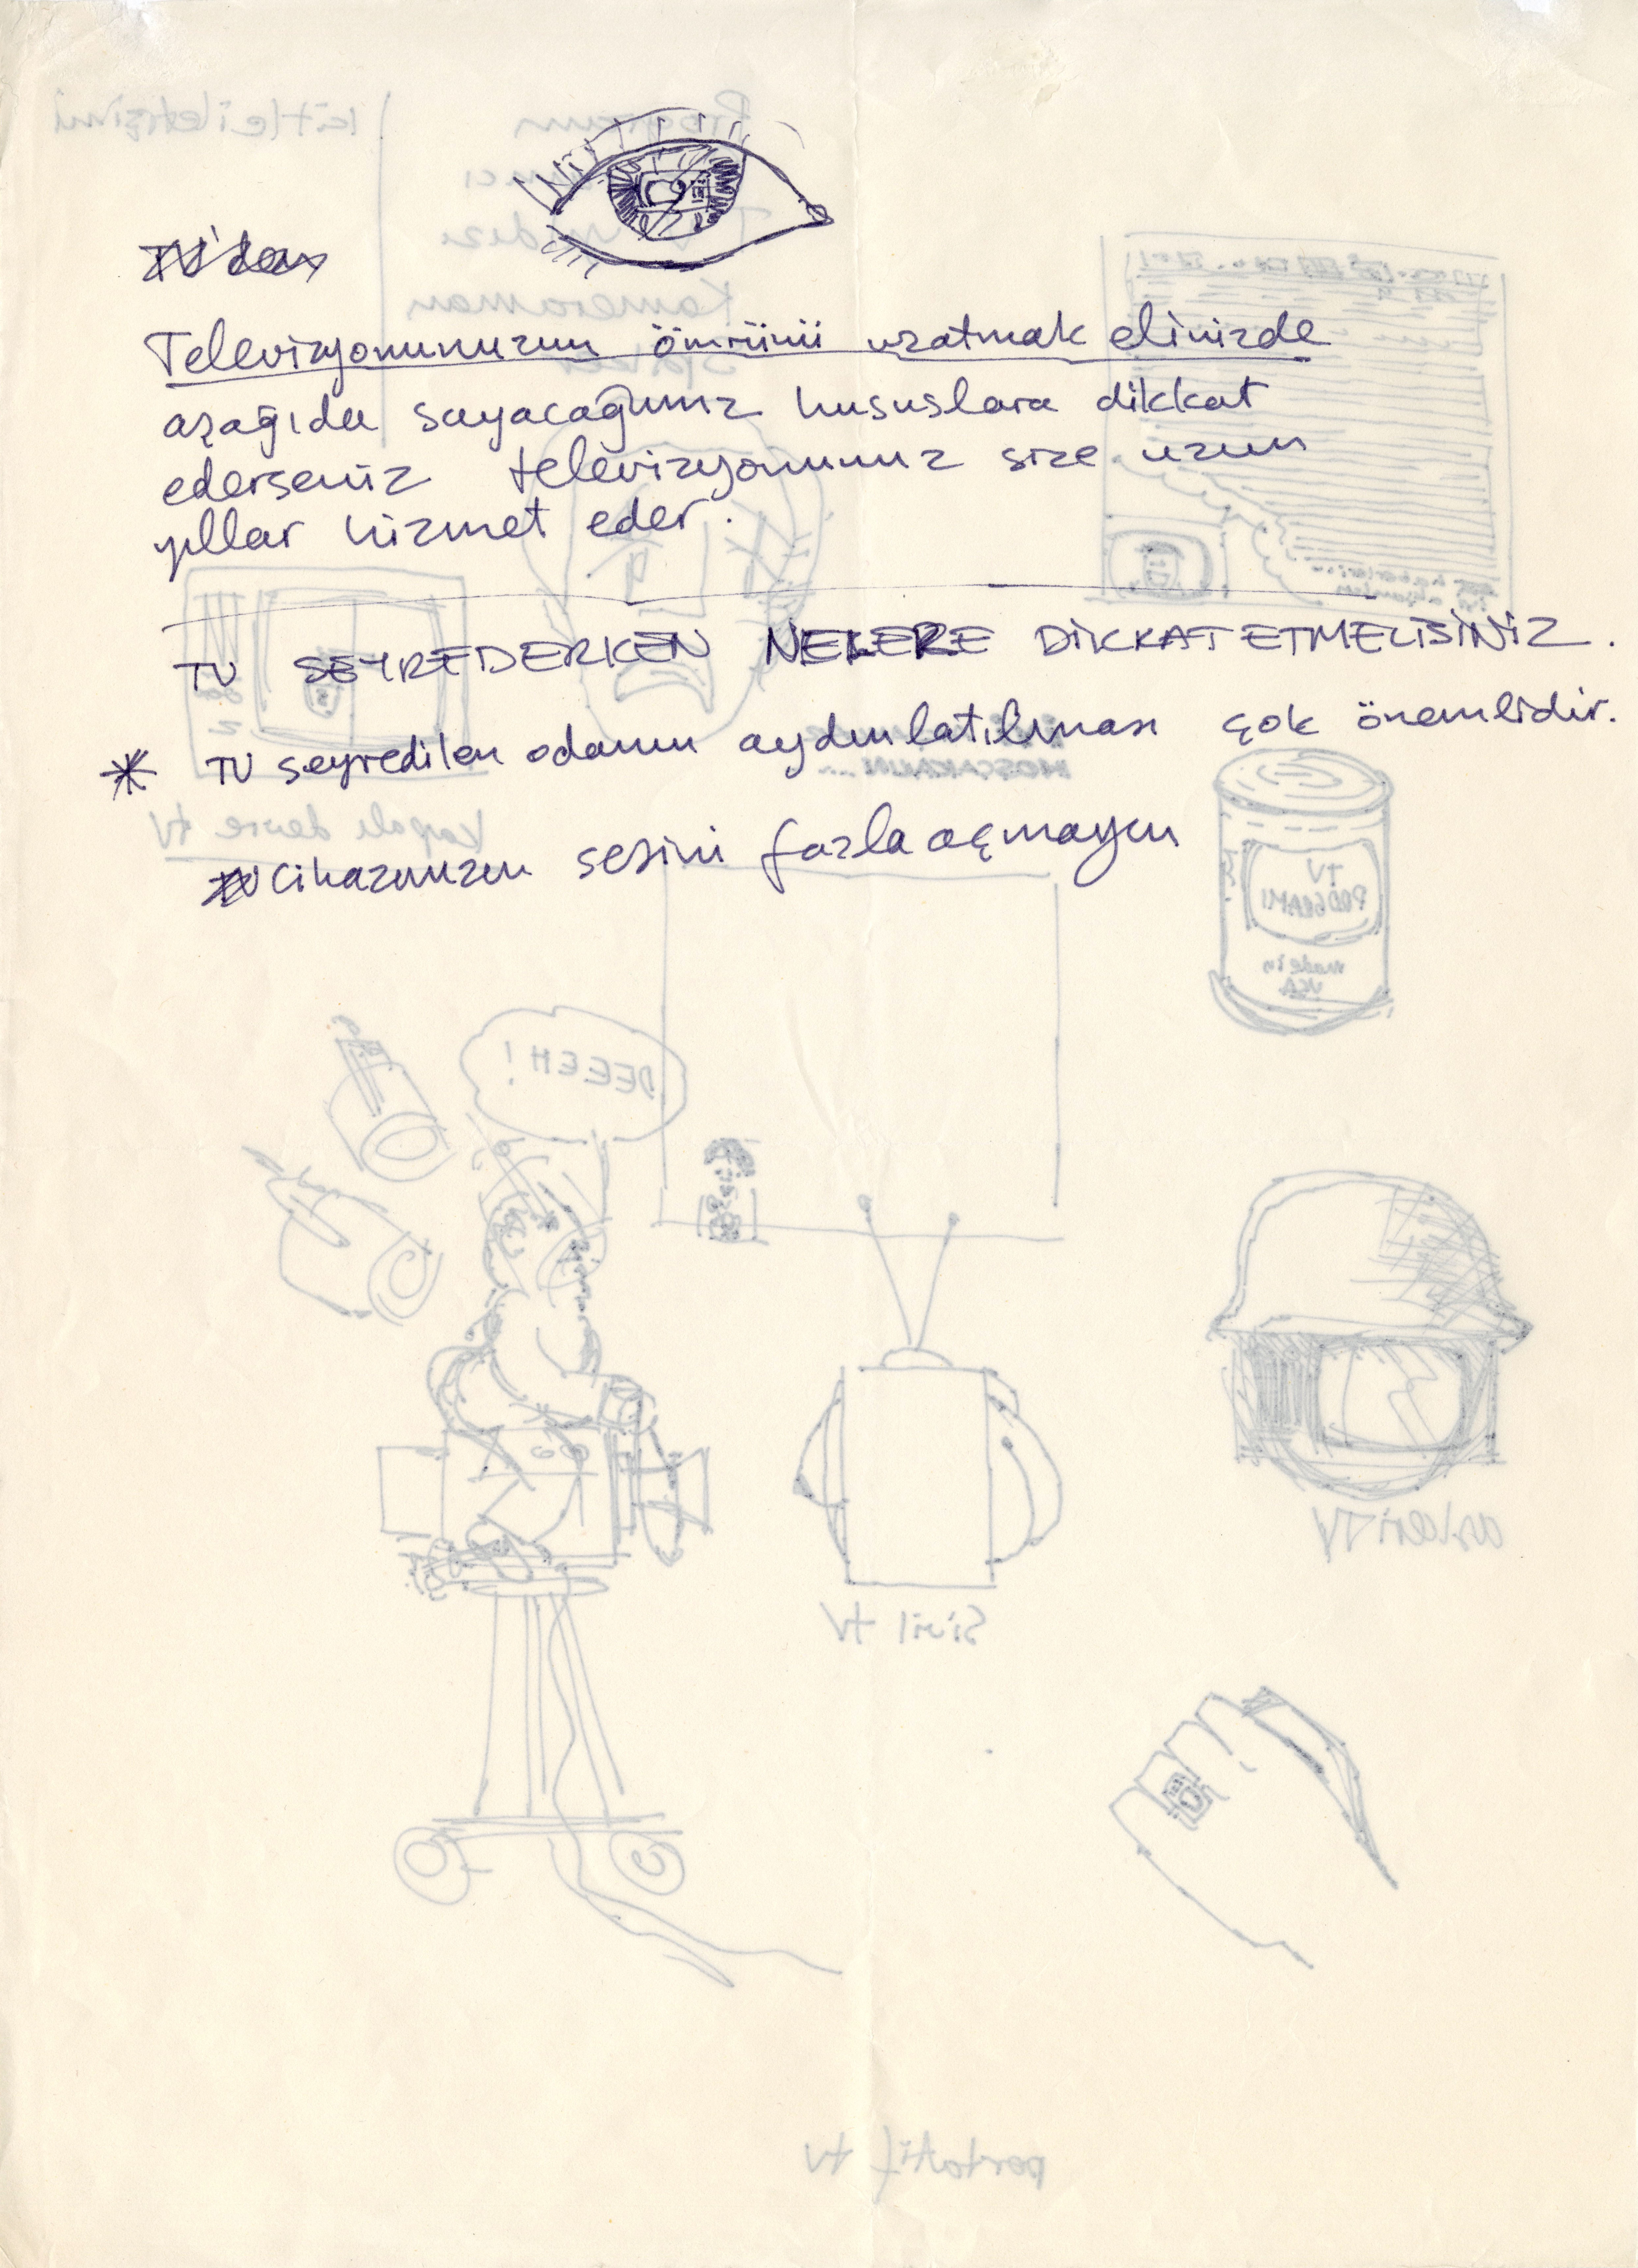 TV'den
Televizyonunuzun ömrünü uzatmak elinizde
aşağıda sayacağımız hususlara dikkat
ederseniz televizyonunuz size uzun
yıllar hizmet eder.
TV SEYREDERKEN NELERE DİKKAT ETMELİSİNİZ.
* TV seyredilen odanın aydınlatılması çok önemlidir.
TV Cihazınızın sesini fazla açmayın
kütle iletişimi
Program
Kameraman
HOŞÇAKALIN...
Kapalı devre tv
TV
PROGRAMI
made in
USA
DEEEH!
askeri TV
Sivil tv
portatif tv